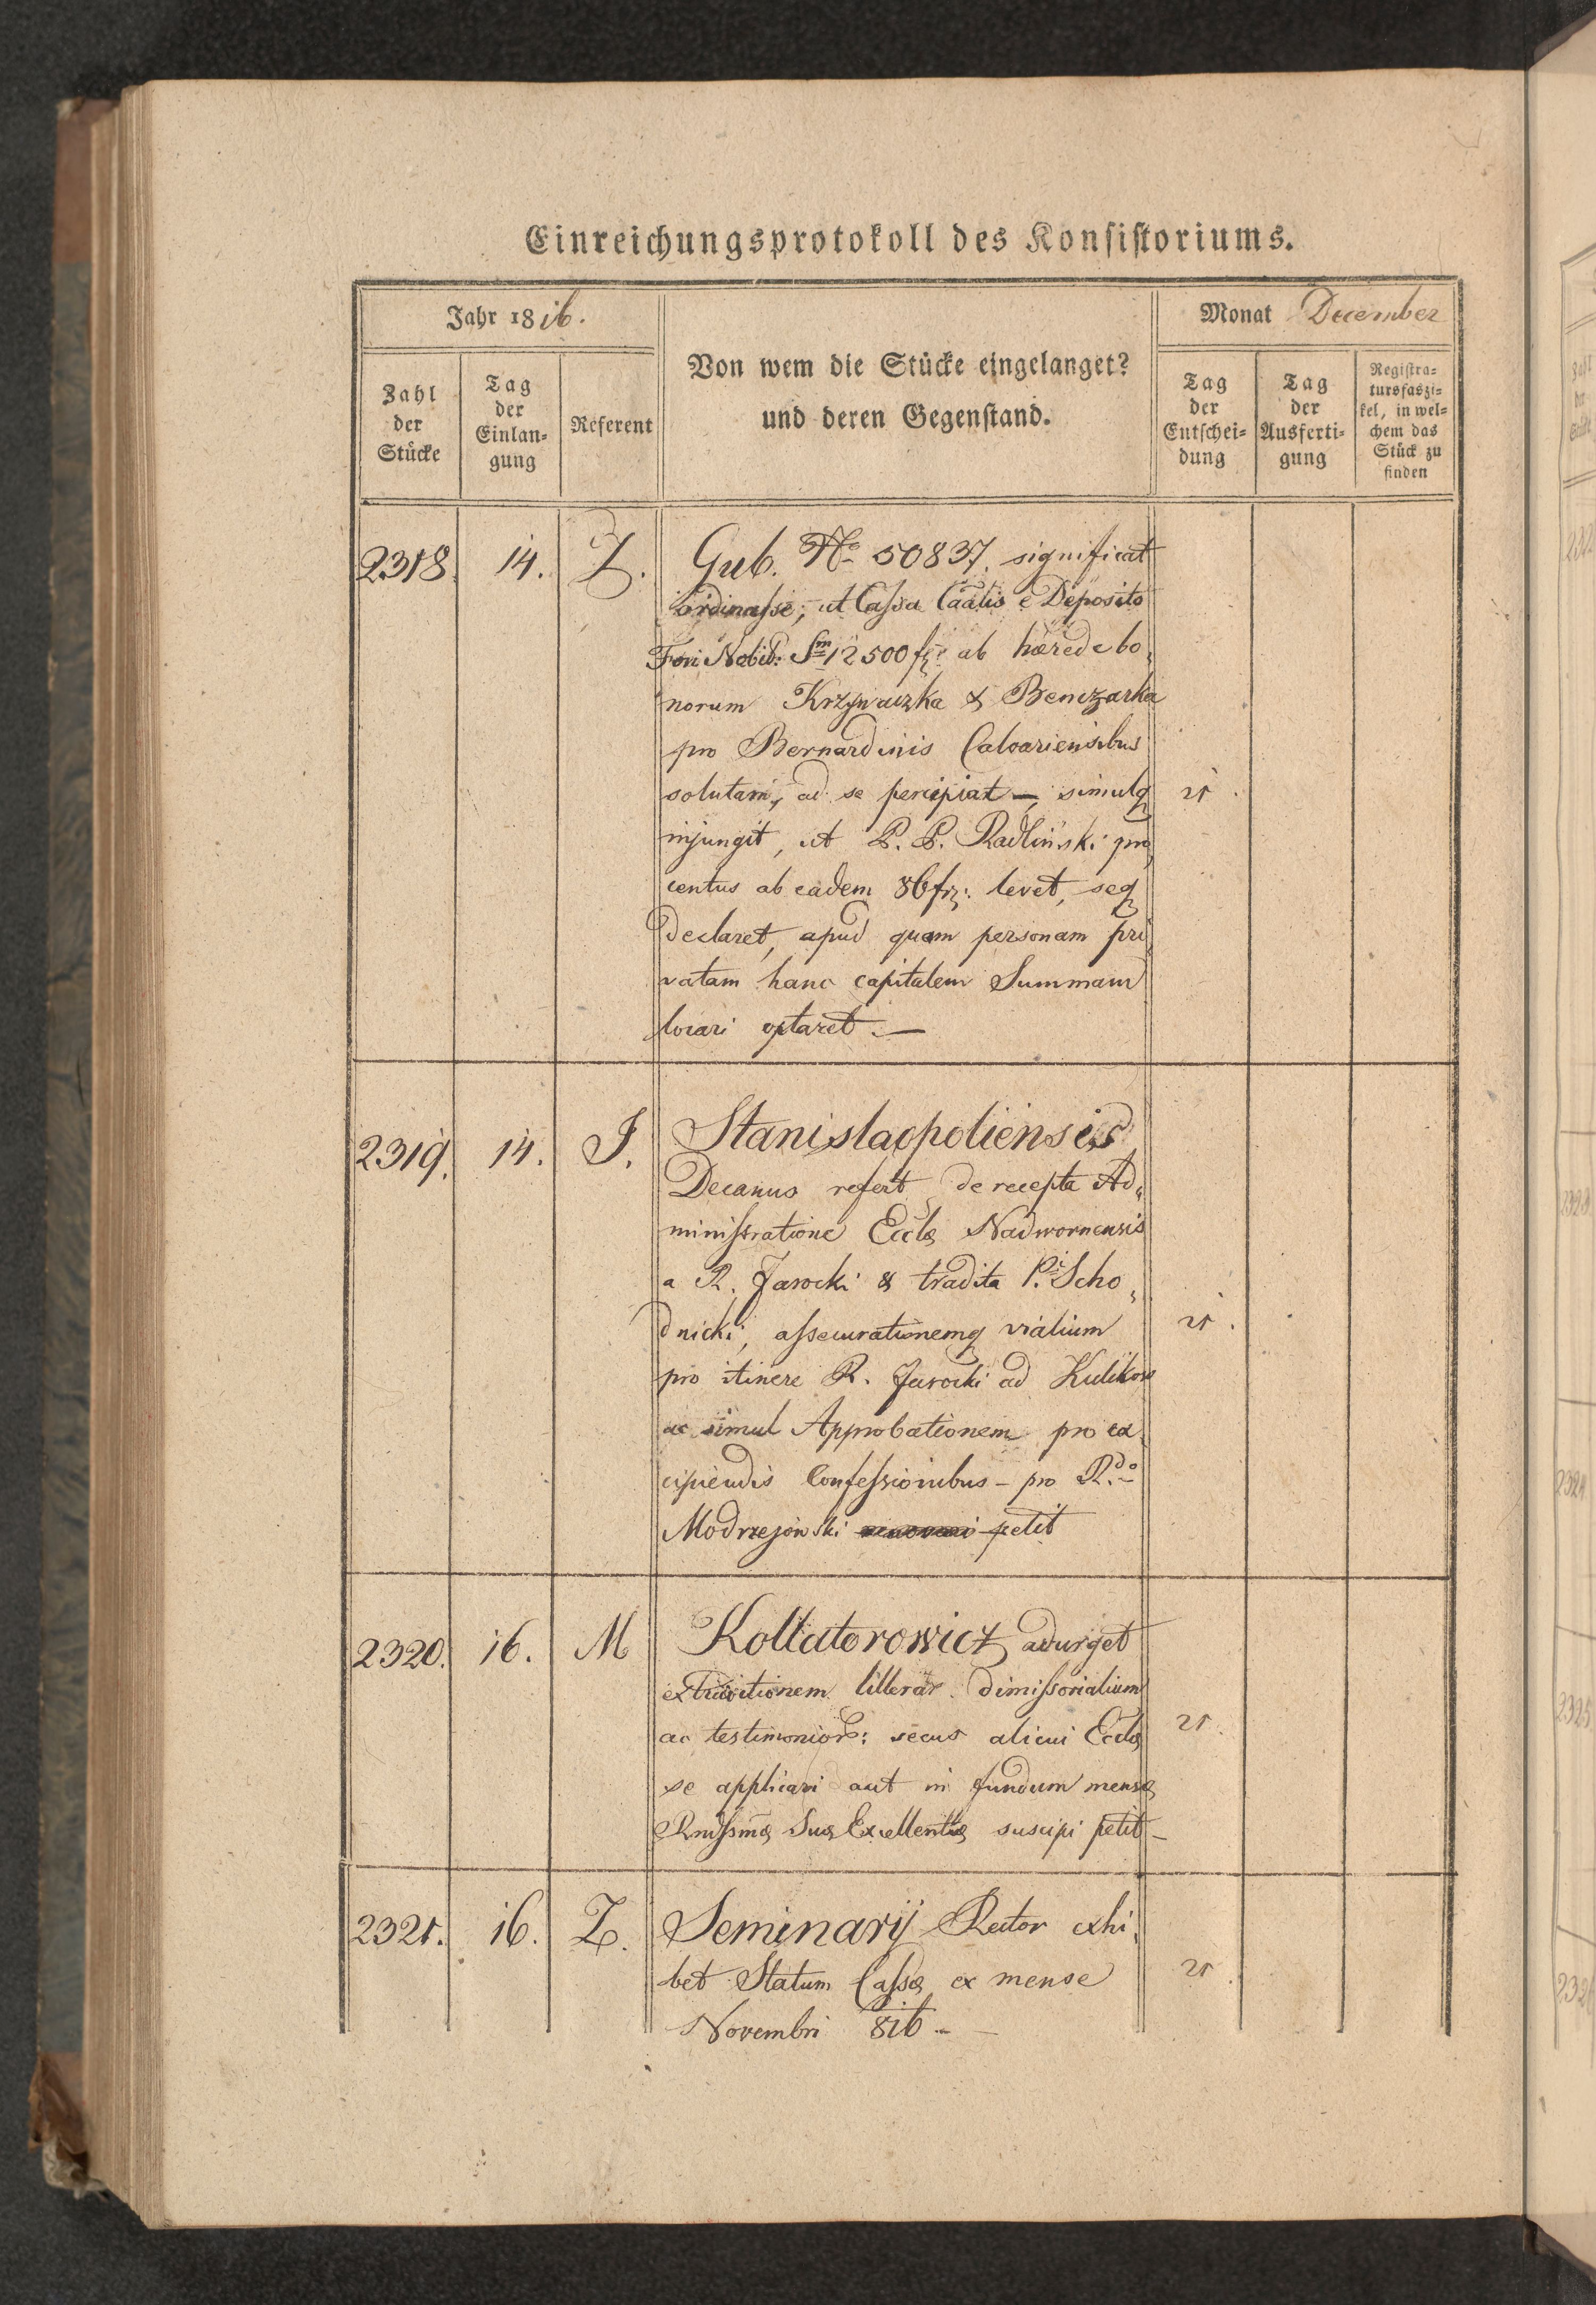 Einreichungsprotokoll des Konsistoriums.
Jahr 1816.
Monat December
Zahl der Stücke
Tag der Einlan-gung
Referent
Von wem die Stücke eingelanget?
und deren Gegenstand.
Tag der Entschei-dung
Tag der Ausferti-gung
Registra-tursfaszi-kel, in wel-chem das Stück zu finden
2318. 14. Z. Gub. No 50837. significat
ordinasse, ut Cassa Caālis e Deposito
Fori Nobil: Sm 12500 fr: ab hærede bo,
norum Krzywaczka & Benczarka
pro Bernardinis Calvariensibus
solutam, ad se percipiat —, simulq 21.
injungit, ut P. P. Radliński pro,
centus ab eadem 86 fr: levet, seq
declaret, apud quam personam pri,
vatam hanc capitalem Summam
locari optaret. —
2319. 14. J. Stanislaopoliensis
Decanus refert de recepta Ad,
ministratione Ecclæ Nadwornensis
a R. Jarocki & tradita P. Scho,
dnicki, assecurationemq vialium 21.
pro itinere R. Jarocki ad Kulikow
ac simul Approbationem pro ex,
cipiendis Confessionibus – pro R.do
Modrzejowski petit
2320. 16. M Kollatorowicz adurget
extraditionem litterar. dimissorialium
ac testimonior: secus alicui Ecclæ 21.
se applicari aut in fundum mensæ
Rmissmæ Suæ Excellentiæ suscipi petit –
2321. 16. Z. Seminarij Rector exhi,
bet Statum Cassæ ex mense 21.
Novembri 816. –